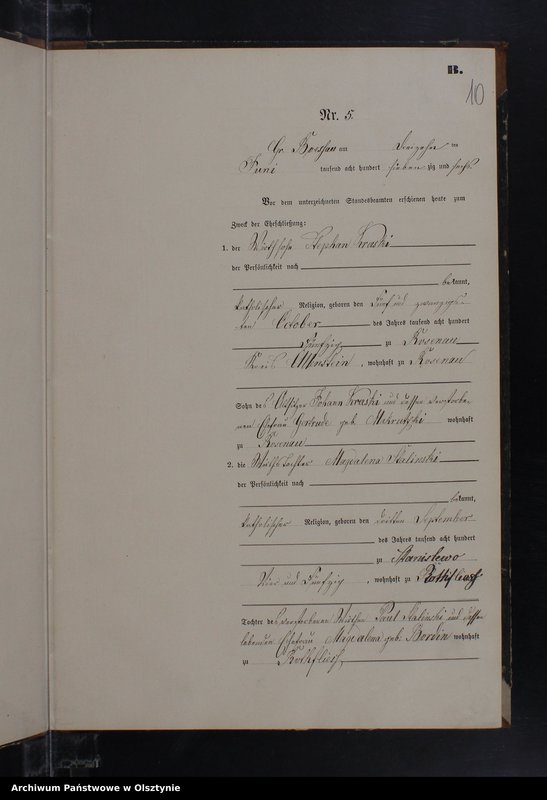 B.
10
Nr. 5.
Gr. Boessau am Dreizehn ten
Juni tausend acht hundert sieben zig und sechs
Vor dem unterzeichneten Standesbeamten erschienen heute zum
Zweck der Eheschließung:
1. der Wirthssohn Stephan Kraski
der Persönlichkeit nach
bekannt,
katholischer Religion, geboren den Fünf und zwanzigs-
ten October des Jahres tausend acht hundert
Fünfzig zu Rosenau
Kreis Allenstein, wohnhaft zu Rosenau
Sohn des Altsitzer Johann Kraski und dessen verstorbe-
nen Ehefrau Gertrude geb. wohnhaft
zu Rosenau
2. die Wirthstochter Magdalena Stalinski
der Persönlichkeit nach
bekannt,
katholischer Religion, geboren den dritten September
des Jahres tausend acht hundert
zu Stanislewo
Vier und Fünfzig, wohnhaft zu Rothfließ
Tochter des verstorbenen Wirthen Paul Stalinski und dessen
lebenden Ehefrau Magdalena geb. Bordin wohnhaft
zu Rothfließ
Archiwum Państwowe w Olsztynie